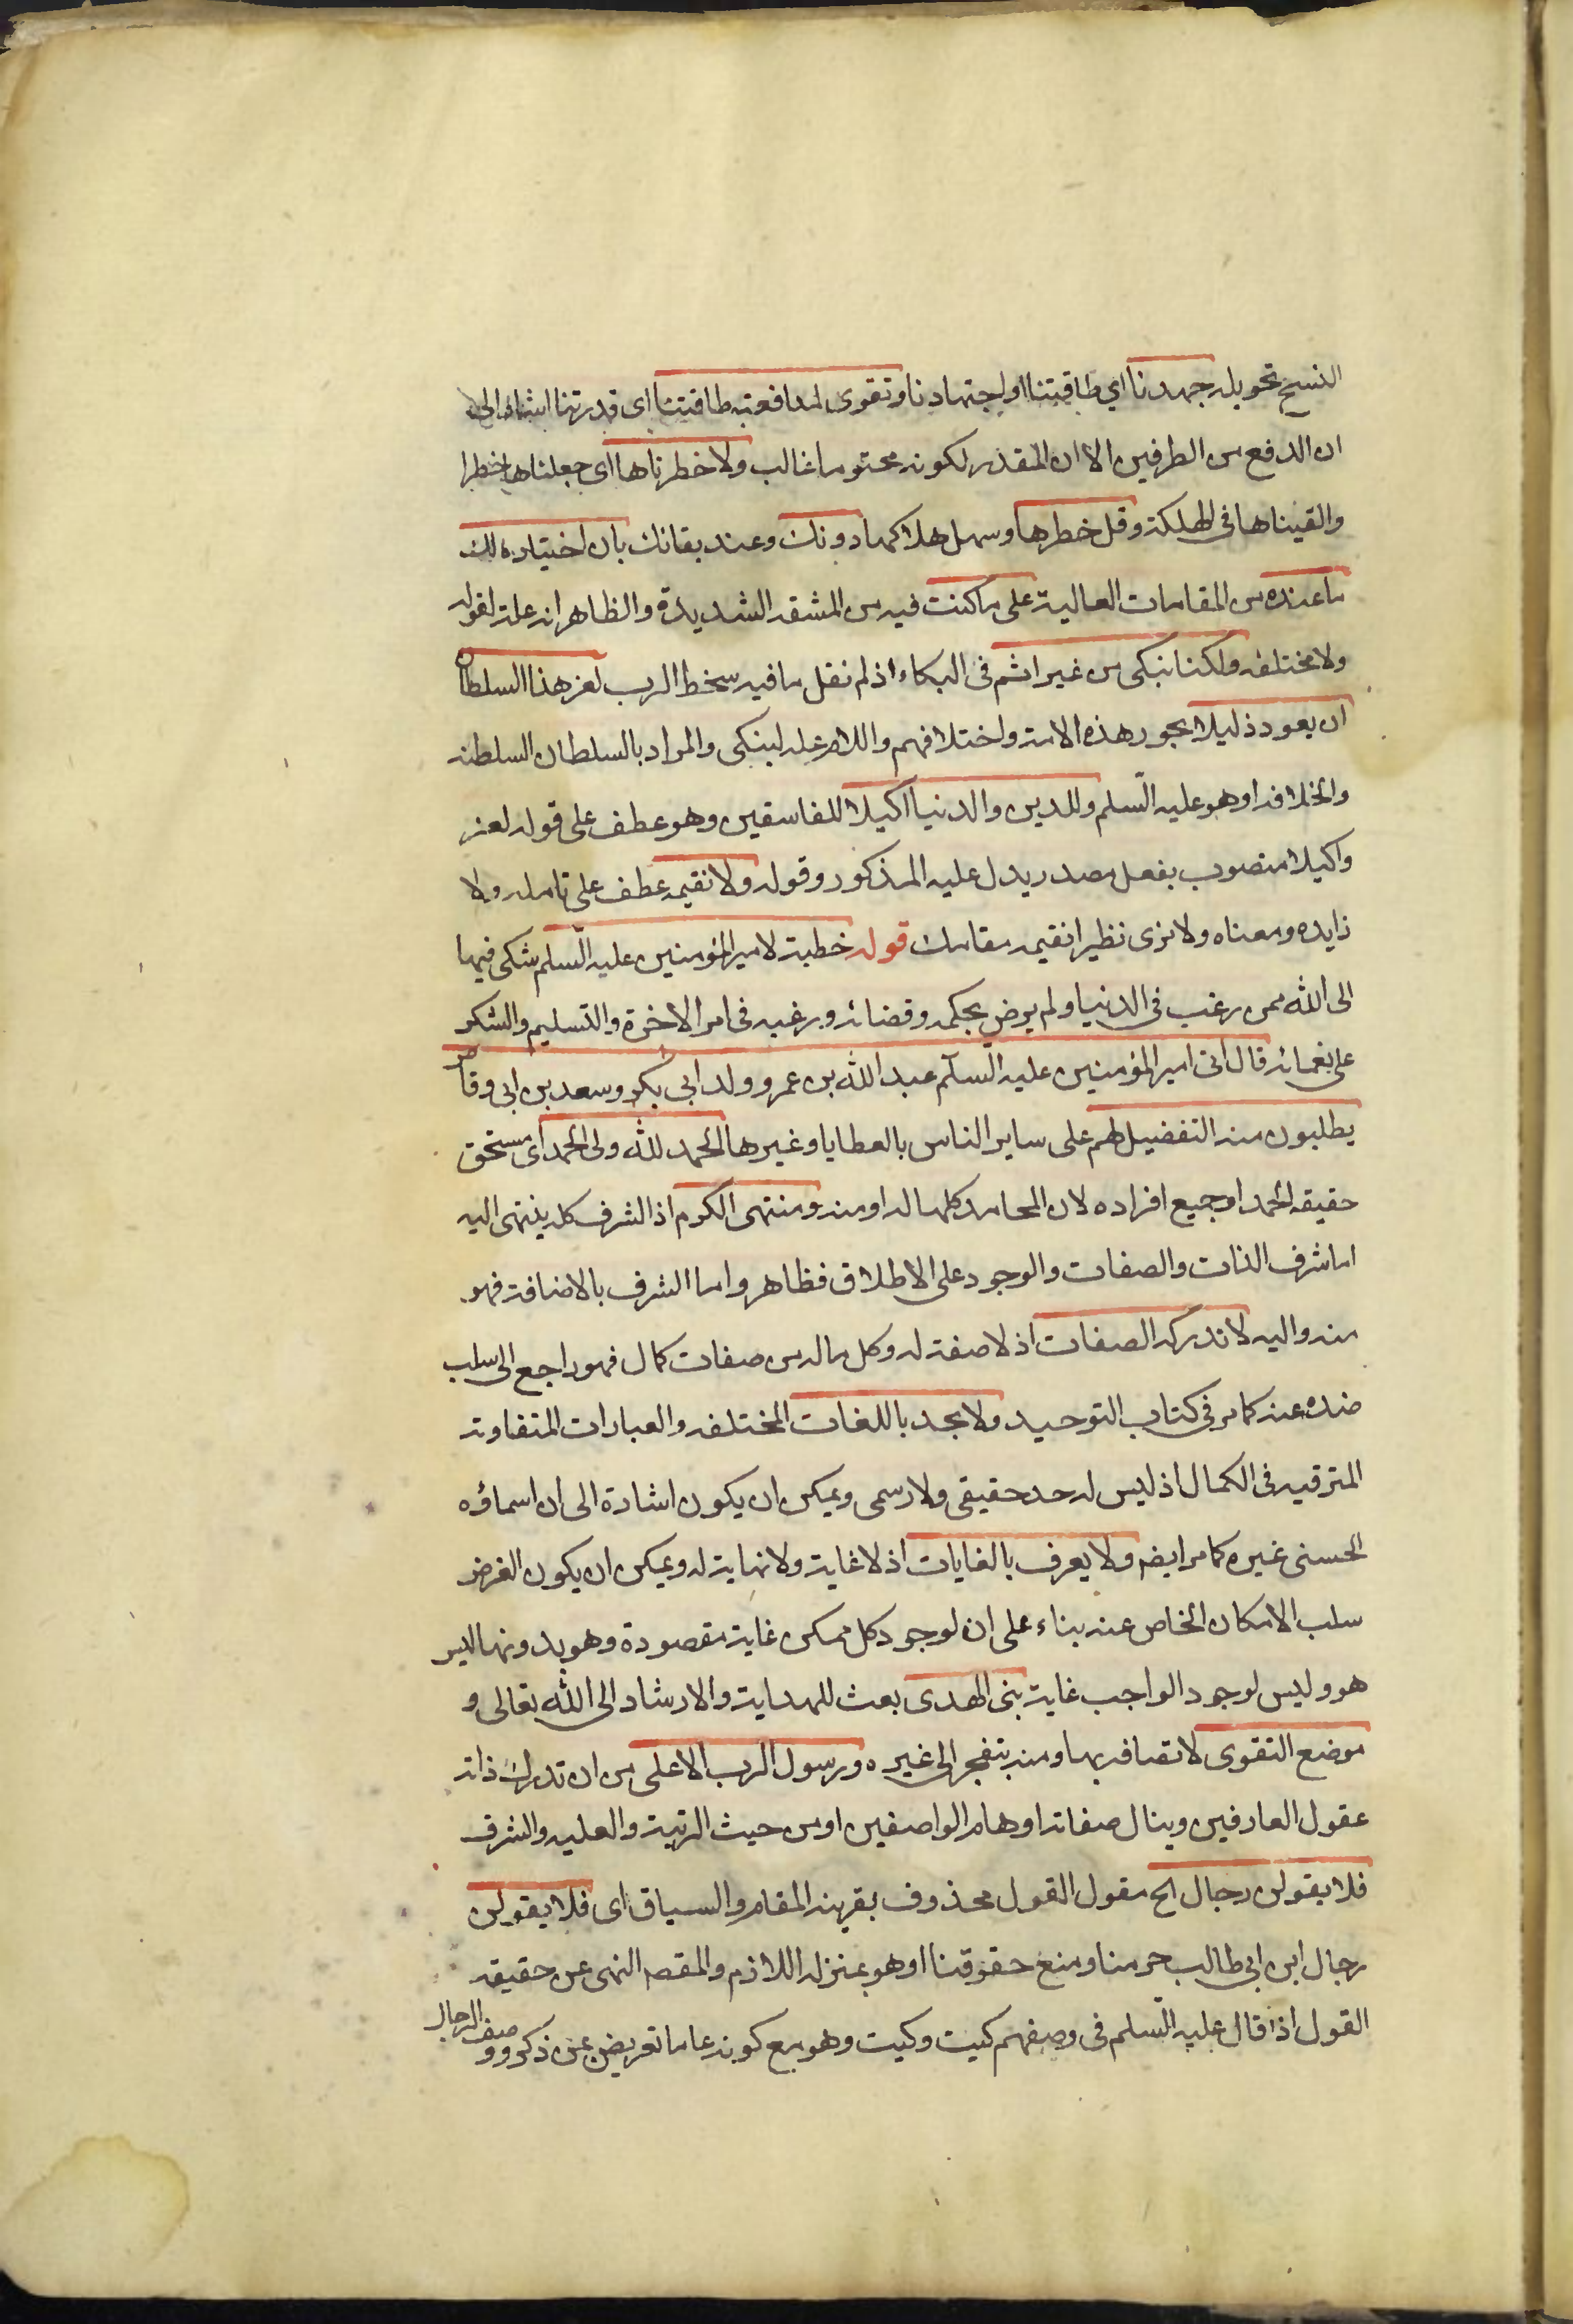 النسخ تحويله جهدنا اي طاقتنا او اجتهادنا وتقوى لمدافعته طاقتنا اى قدرتنا اشار الى
ان الدفع من الطرفين الا ان المقدر لكونه محتوما غالب ولاخطرناها اى جعلناها خطرا
والقيناها فى الهلكة وقل خطرها وسهل هلاكها دونك وعند بقائك بان اختياره لك
ما عنده من المقامات العالية على ما كنت فيه من المشقه الشديدة والظاهر انه علة لقوله
ولا مختلفه ولكنا نبكى من غير اثم فى البكاء اذ لم نقل ما فيه سخط الرب لعز هذا السلطان
ان يعود ذليلا بجور هذه الامة واختلافهم واللام علة لنبكى والمراد بالسلطان السلطنه
والخلافه او هو عليه السلم وللدين والدنيا اكيلا للفاسقين وهو عطف على قوله لعز
واكيلا منصوب بفعل مصدر يدل عليه المذكور وقوله ولا نقيمه عطف على تامله ولا
زايده ومعناه ولا نرى نظيرا نقيمه مقامك قوله خطبة لامير المؤمنين عليه السلم شكى فيها
الى الله ممن رغب فى الدنيا ولم يرض بحكمه وقضائه ورغبه فى امر الاخرة والتسليم والشكر
على نعمائه قال اتى امير المؤمنين عليه السلم عبد الله بن عمر وولد ابى بكر وسعد بن ابى وقاص
يطلبون منه التفضيل لهم على ساير الناس بالعطايا وغيرها الحمد لله ولى الحمد اى مستحق
حقيقه الحمد او جميع افراده لان المحامد كلها له او منه ومنتهى الكرم اذ الشرف كله ينتهى اليه
اما شرف الذات والصفات والوجود على الاطلاق فظاهر واما الشرف بالاضافة فهو
منه واليه لا تدركه الصفات اذ لا صفة له وكل ماله من صفات كمال فهو راجع الى سلب
ضده عنه كما مر فى كتاب التوحيد ولا يحد باللغات المختلفه والعبارات المتفاوته
المترقيه فى الكمال اذ ليس له حد حقيقى ولا رسمى ويمكن ان يكون اشارة الى ان اسماؤه
الحسنى غيره كما مر ايضم ولا يعرف بالغايات اذ لا غاية ولا نهاية له ويمكن ان يكون الغرض
سلب الامكان الخاص عنه بناء على ان لوجود كل ممكن غاية مقصودة وهو بدونها ليس
هو وليس لوجود الواجب غاية بنى الهدى بعث للهداية والارشاد الى الله تعالى و
موضع التقوى لاتصافه بها ومنه تنفجر الى غيره ورسول الرب الاعلى من ان تدرك ذاته
عقول العارفين وينال صفاته اوهام الواصفين او من حيث الرتبة والعليه والشرف
فلا يقولن رجال الخ مقول القول محذوف بقرينه المقام والسياق اى فلا يقولن
رجال ابن ابى طالب حرمنا ومنع حقوقنا او هو بمنزله اللازم والمقصم النهى عن حقيقه
القول اذا قال عليه السلم فى وصفهم كيت وكيت وهو مع كونه عاما تعريض عن ذكر ووصف الرجال